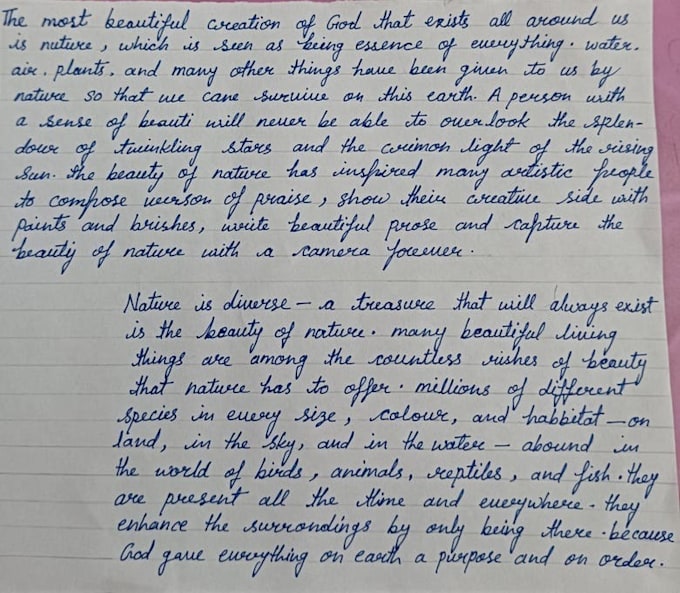 The most beautiful creation of God that exists all around us
is nuture, which is seen as being essence of everything. water.
air. plants. and many other things have been given to us by
nature so that we cane survive on this earth. A person with
a sense of beauti will never be able to overlook the splen-
dour of twinkling stars and the crimon light of the rising
sun. the beauty of nature has inspired many artistic people
to compose verson of praise, show their creative side with
paints and brishes, write beautiful prose and capture the
beauty of nature with a camera forever.
Nature is diverse - a treasure that will always exist
is the beauty of nature. many beautiful living
things are among the countless rishes of beauty
that nature has to offer. millions of different
species in every size, colour, and habbitat - on
land, in the sky, and in the water - abound in
the world of birds, animals, reptiles, and fish. they
are present all the thime and everywhere. they
enhance the surrondings by only being there. because
God gave everything on earth a purpose and on order.